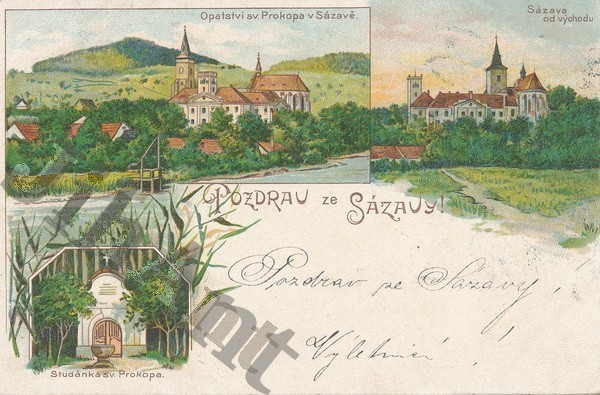 Opatství sv. Prokopa v Sázavě.
Sázava
od východu
Pozdrav ze Sázavy!
Pozdrav ze Sázavy!
Výletníci!
Studánka sv. Prokopa.